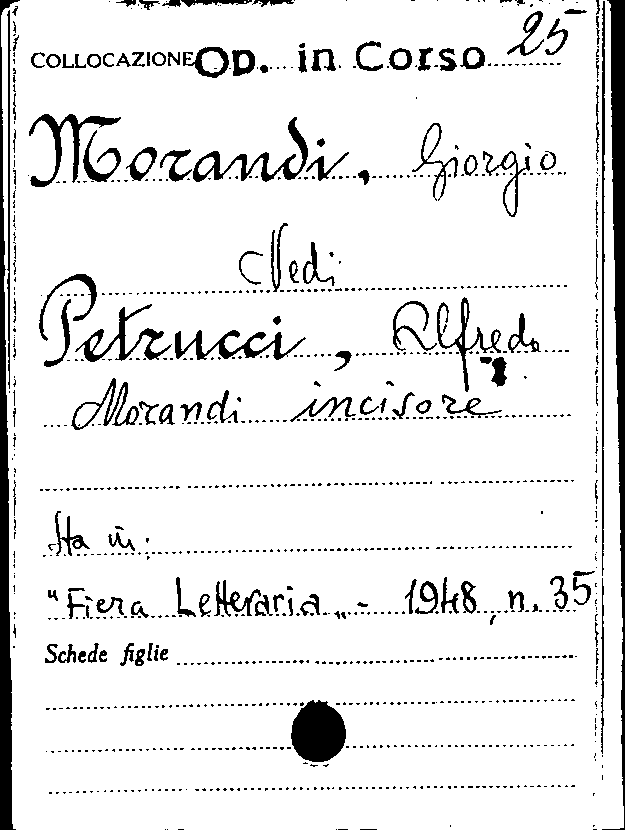 25
COLLOCAZIONE OP. in Corso
Morandi, Giorgio
Vedi
Petrucci, Alfredo
Morandi incisore
Sta in:
"Fiera Letteraria" - 1948, n. 35
Schede figlie